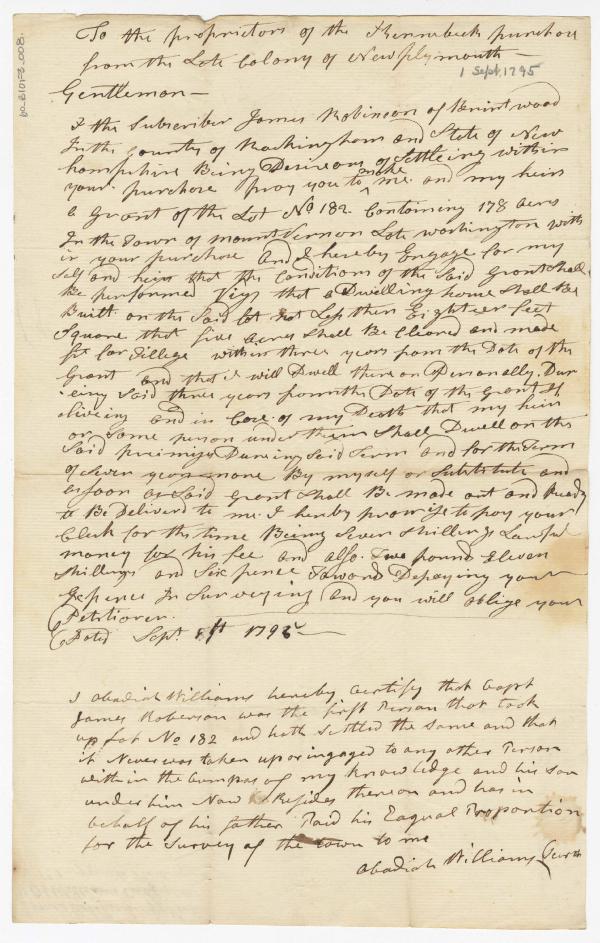 To the proprietors of the Kennebeck purchase
from the Late Colony of New plymouth —
1 Sept. 1795
60-8101-F3-008.
Gentlemen —
I the Subscriber James Robinson of Brintwood
In the County of Rockingham and State of New
hampshire Being Desireous of Settleing within
your purchase pray you to make me and my heirs
a Grant of the Lot No 182. Containing 178 acrs
In the Town of mount Vernon Late washington with
in your purchase and I hereby Engage for my
self and heirs that the Conditions of the Said Grant Shall
Be performed Viz that a Dwelling house Shall Be
Built on the Said lot not Less then Eighteen feet
Square that five acres Shall Be Cleared and made
fit for Tillege within three years from the Date of the
Grant and that I will Dwell there on Personally Dur
ing Said three years from the Date of the Grant If
liveing and in Case of my Death that my heirs
or Some person under them Shall Dwell on the
Said premises Dureing Said Term and for the Term
of Seven years more By myself or Substitute and
as soon as Said Grant Shall Be made out and Ready
to Be Deliverd to me I hereby promise to pay your
Clerk for the time Being Seven Shillings Lawful
money for his fee and also Two pound Eleven
Shillings and Six pence Toward Defraying your
Expence In Surveying and you will oblige your
Petitioner.
Dated Sept. 1st 1795 —
I Obadiah Williams hereby Certify that Capt
James Roberson was the first Person that took
up Lot No 182 and hath Settled the Same and that
it Never was taken up or ingaged to any other Person
within the Cumpas of my knowledge and his Son
under him Now Resides thereon and has in
behalf of his father Paid his Eaqual Proportion
for the Survey of the town to me
Obadiah Williams